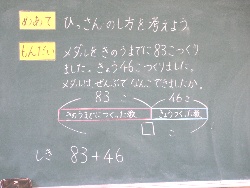 めあて ひっさんのし方を考えよう。
もんだい メダルをきのうまでに83こつくり
ました。きょう46こつくりました。
メダルは、ぜんぶでなんこできましたか。
83こ 46こ
きのうまでにつくった数 きょうつくった数
□こ
しき 83+46